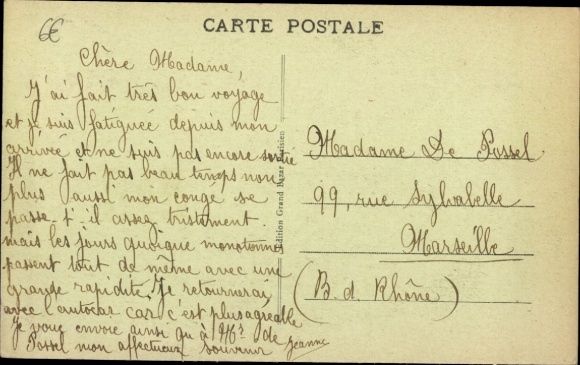 6€
CARTE POSTALE
Chère Madame,
J'ai fait très bon voyage
et je suis fatiguée depuis mon
arrivée et ne suis pas encore sortie
Il ne fait pas beau temps non
plus aussi mon congé se
passe t-il assez tristement.
mais les jours quoique monotones
passent tout de même avec une
grande rapidité. Je retournerai
avec l'autocar car c'est plus agréable
Je vous envoie ainsi qu'à Mr de
Possel mon affectueux souvenir
Jeanne
Edition Grand Bazar Parisien
Madame De Possel
99, rue Sylvabelle
Marseille
(B. d. Rhône)